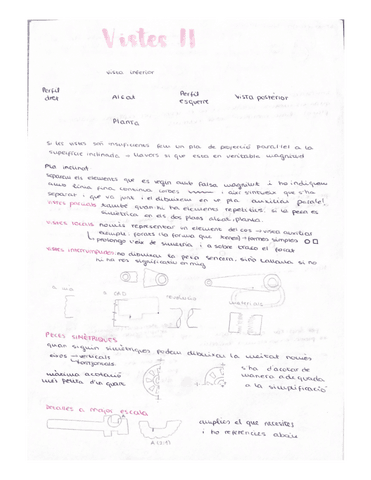 Vistes II
vista inferior
Perfil dret
Alçat
Perfil esquerre
Vista posterior
Planta
si les vistes són insuficients feu un pla de projecció paral·lel a la
superfície inclinada → llavors si que està en veritable magnitud
Pla inclinat
separem els elements que es vegin amb falsa magnitud i ho indiquem
amb línia fina contínua corbes i així sintueix que s'ha
separat i que va junt i el dibuixem en un pla auxiliar paral·lel
vistes parcials: també quan hi ha elements repetitius, si la peça és
simètrica en els dos plans alçat, planta.
vistes locals: només representar un element del cos → vista auxiliar
exemple: forats (la forma que tenen) → formes simples
prolongo eix de simetria i a sobre traço el forat
vistes interrompudes: no dibuixar la peça sencera, sinó tallada si no
hi ha res significatiu en mig
PECES SIMÈTRIQUES
quan siguin simètriques podem dibuixar la meitat només
eixos → verticals
horitzontals
màxima acotació
més petita d'un quart
s'ha d'acotar de
manera adequada
a la simplificació
Detalles a major escala
A (2:1)
amplies el que necessites
i ho referencies abaix